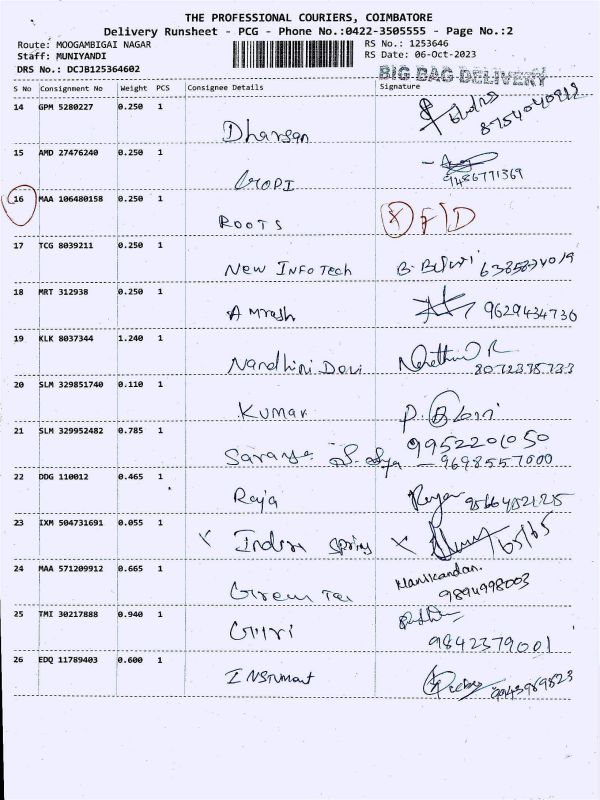 THE PROFESSIONAL COURIERS, COIMBATORE
Delivery Runsheet - PCG - Phone No.:0422-3505555 - Page No.:2
Route: MOOGAMBIGAI NAGAR RS No.: 1253646
Staff: MUNIYANDI RS Date: 06-Oct-2023
DRS No.: DCJB125364602 BIG BAG DELIVERY
S No Consignment No Weight PCS Consignee Details Signature
14 GPM 5280227 0.250 1
Dharsan
15 AMD 27476240 0.250 1
GOPI 9486771369
16 MAA 106480158 0.250 1
ROOTS X F D
17 TCG 8039211 0.250 1
New InFo Tech B.
18 MRT 312938 0.250 1
Amresh 9629434730
19 KLK 8037344 1.240 1
Nandhini Devi
20 SLM 329851740 0.110 1
Kumar P.
21 SLM 329952482 0.785 1
9952201050
Saranya - 9698557000
22 DDG 110012 0.465 1
Raja
23 IXM 504731691 0.055 1
X Indira spring X
24 MAA 571209912 0.665 1
Manikandan.
9894998003
25 TMI 30217888 0.940 1
Giri
9842379001
26 EDQ 11789403 0.600 1
9943969823